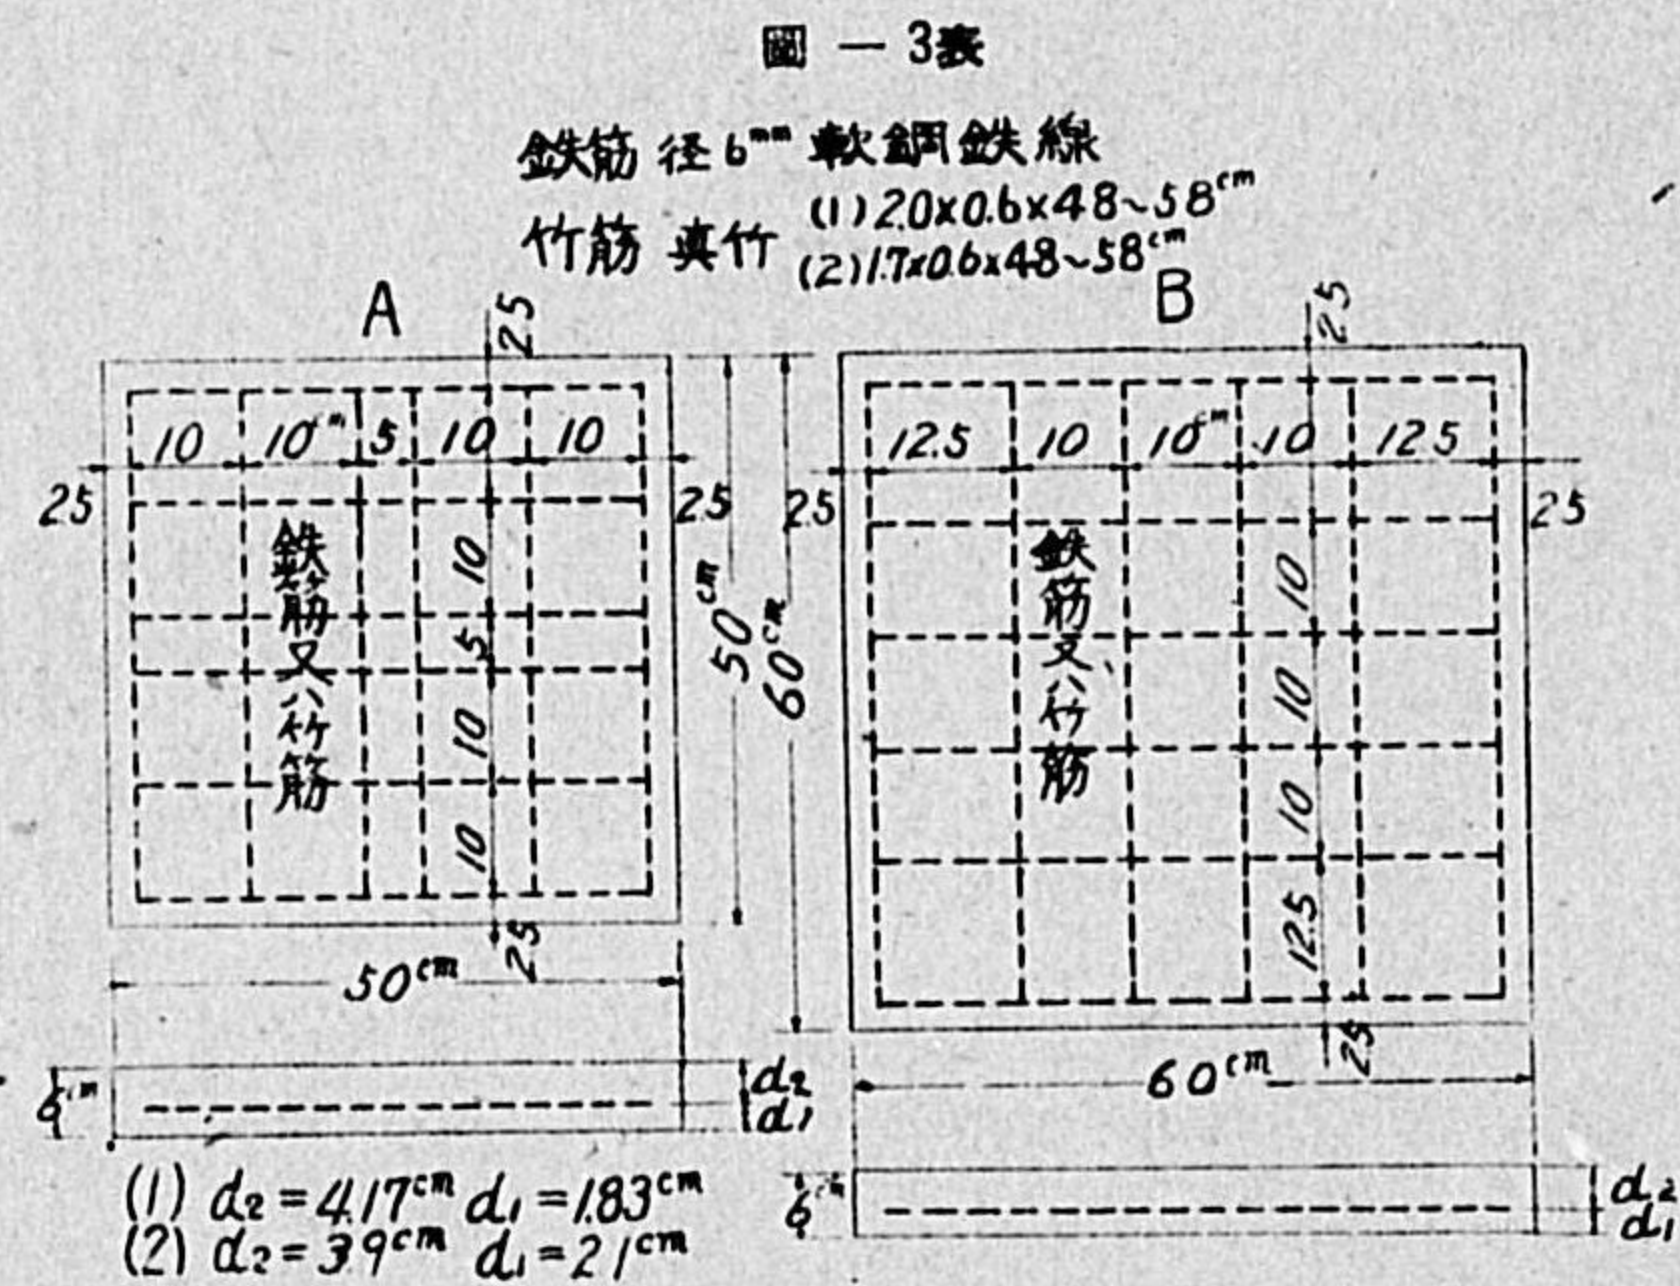 圖 — 3表
鉄筋 径6mm 軟鋼鉄線
竹筋 真竹 (1) 2.0×0.6×48~58cm
(2) 1.7×0.6×48~58cm
A
25
10 10cm 5 10 10
25 25
10
5
10
10
25
鉄筋又ハ竹筋
50cm
50cm
6cm
d2
d1
(1) d2=4.17cm d1=1.83cm
(2) d2=3.9cm d1=2.1cm
B
25
12.5 10 10cm 10 12.5
25 25
10
10
10
12.5
25
鉄筋又ハ竹筋
60cm
60cm
6cm
d2
d1